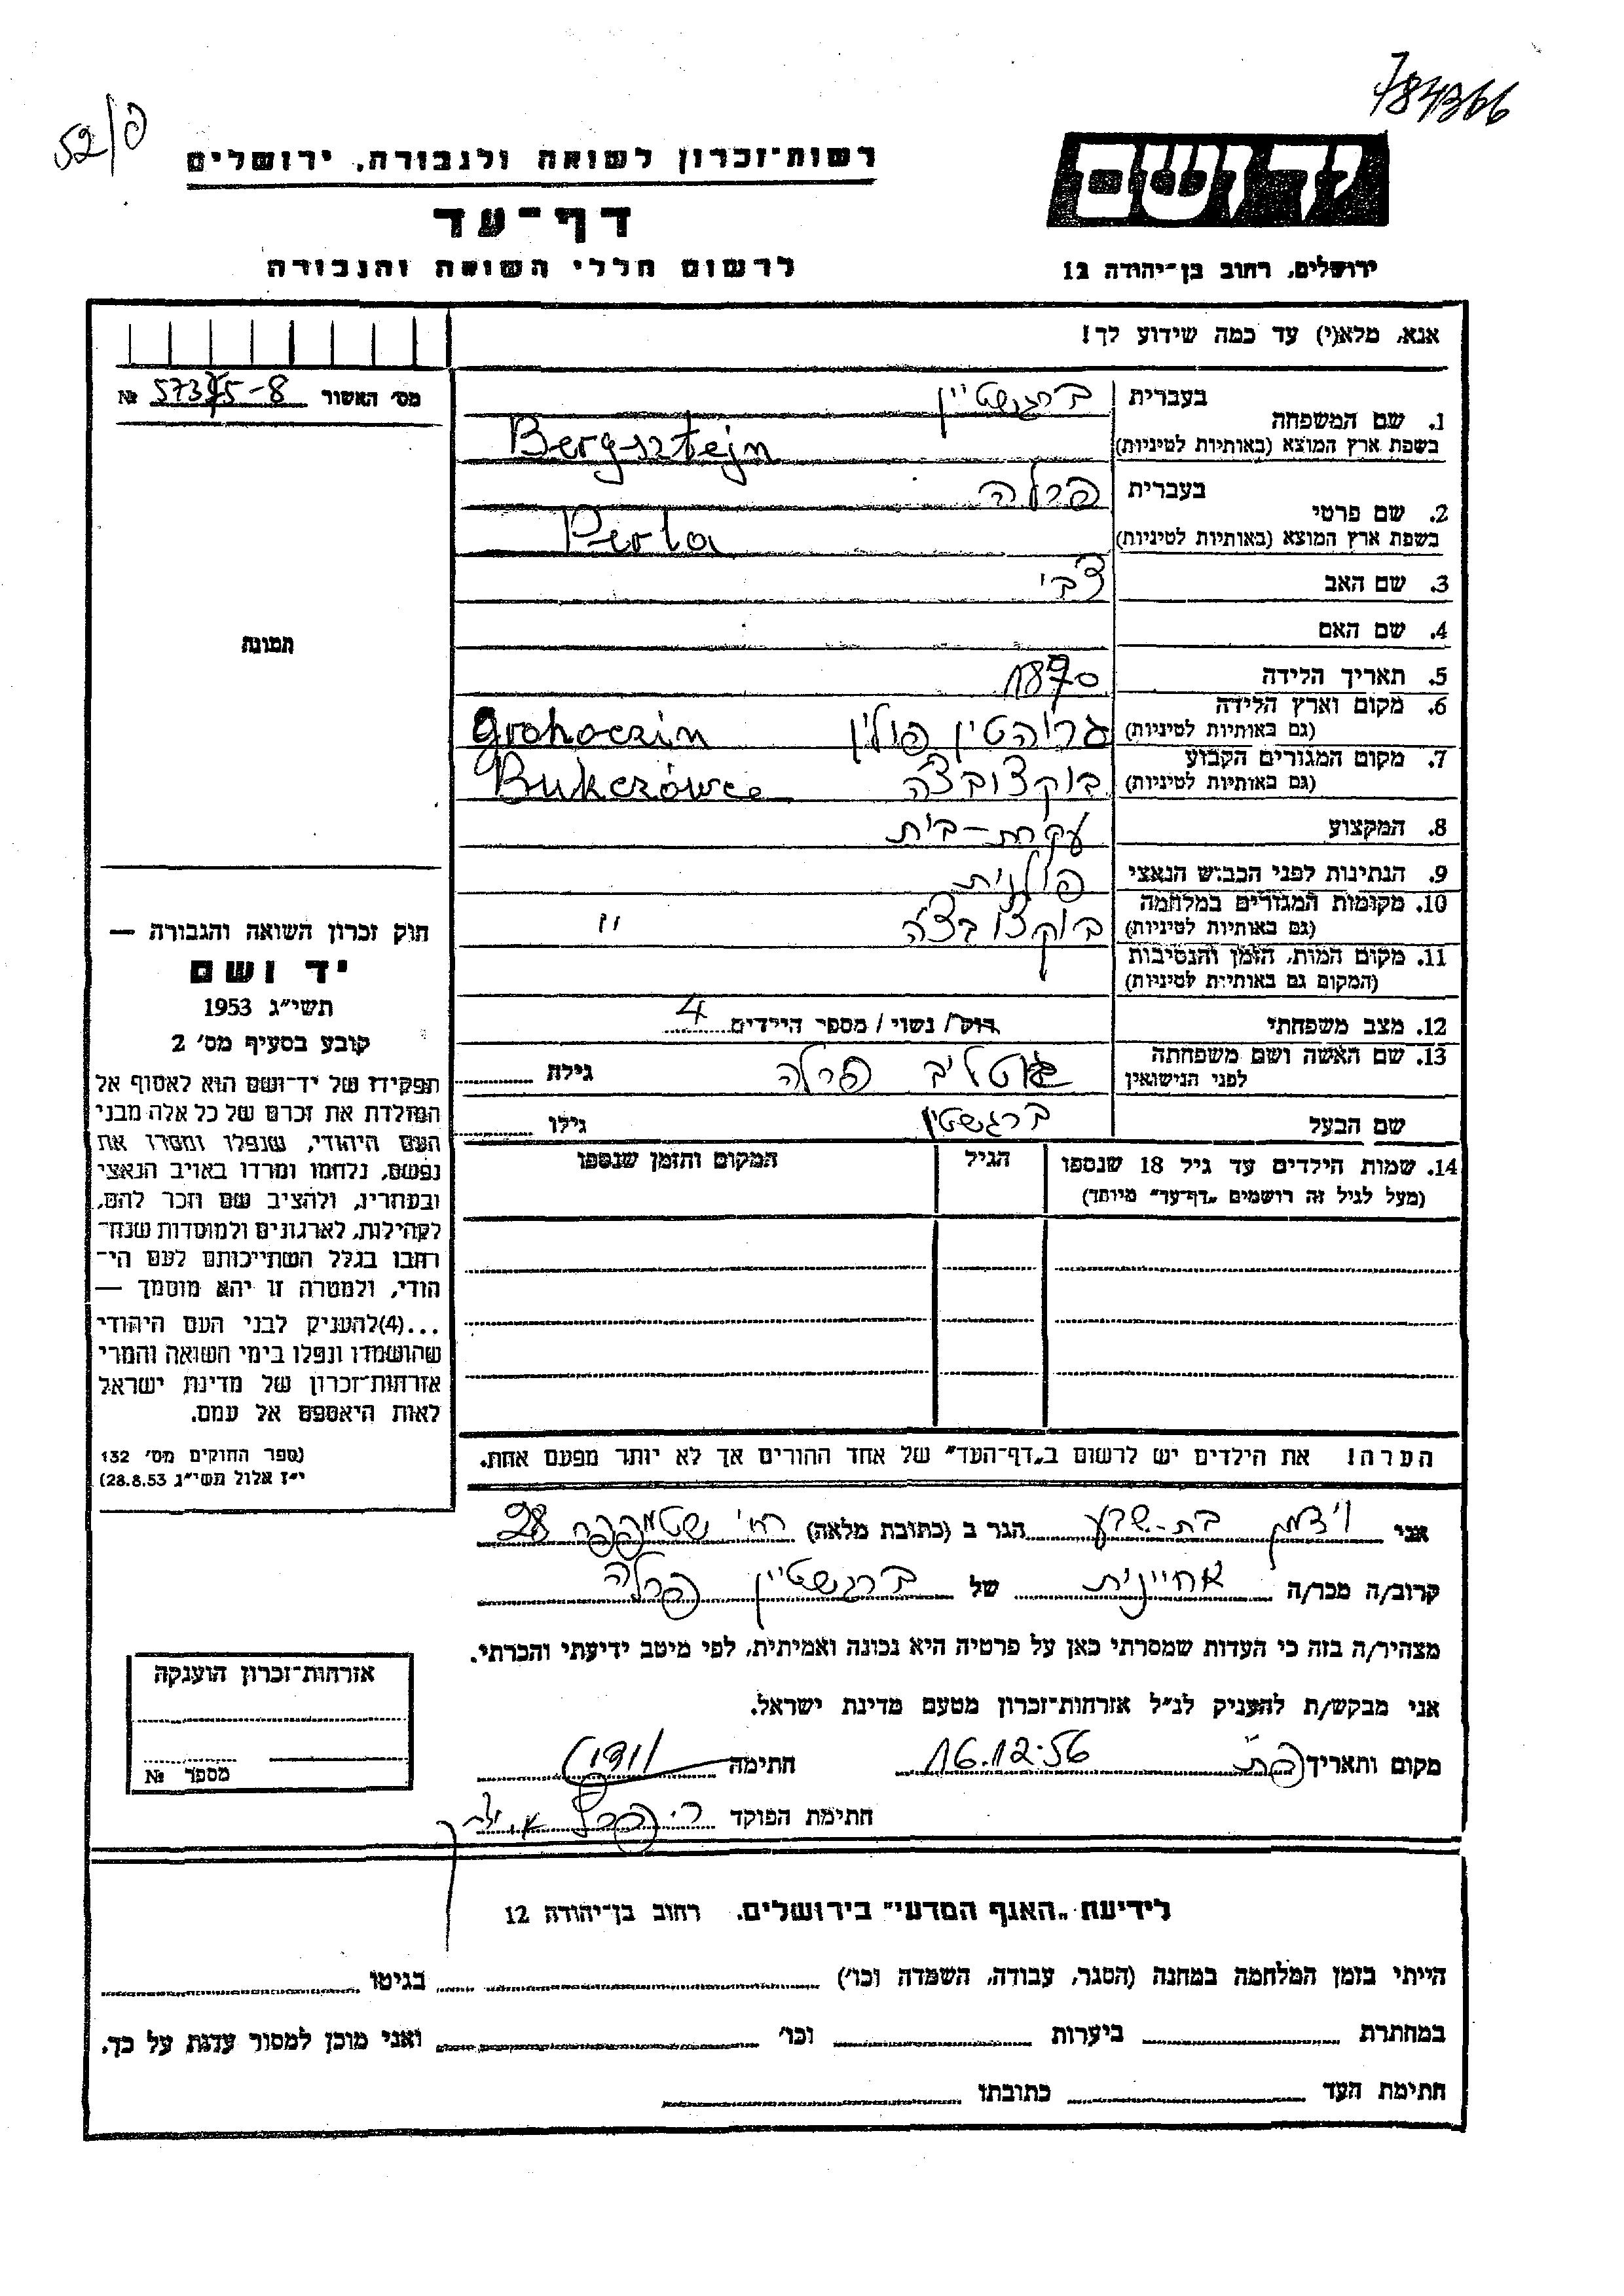 784366
52/פ
יד ושם
רשות־זכרון לשואה ולגבורה, ירושלים
דף־עד
ירושלים, רחוב בן־יהודה 12
לרשום חללי השואה והגבורה
אנא, מלא(י) עד כמה שידוע לך!
מס׳ האשור 57375-8 №
1. שם המשפחה
בעברית ברגשטיין
בשפת ארץ המוצא (באותיות לטיניות) Bergsztejn
2. שם פרטי
בעברית פרלה
בשפת ארץ המוצא (באותיות לטיניות) Perla
3. שם האב צבי
4. שם האם
תמונה
5. תאריך הלידה 1870
6. מקום וארץ הלידה
(גם באותיות לטיניות) גרוהטין פולין Grohoczin
7. מקום המגורים הקבוע
(גם באותיות לטיניות) בוקצובצה Bukczówce
8. המקצוע עקרת-בית
9. הנתינות לפני הכבוש הנאצי פולנית
10. מקומות המגורים במלחמה
(גם באותיות לטיניות) בוקצובצה "
11. מקום המות, הזמן והנסיבות
(המקום גם באותיות לטיניות)
12. מצב משפחתי רוק/ נשוי / מספר הילדים 4
13. שם האשה ושם משפחתה
לפני הנישואין גוטליב פרלה גילה
שם הבעל ברגשטין גילו
14. שמות הילדים עד גיל 18 שנספו
(מעל לגיל זה רושמים „דף־עד״ מיוחד)
הגיל
המקום והזמן שנספו
חוק זכרון השואה והגבורה —
יד ושם
תשי״ג 1953
קובע בסעיף מס׳ 2
תפקידו של יד־ושם הוא לאסוף אל
המולדת את זכרם של כל אלה מבני
העם היהודי, שנפלו ומסרו את
נפשם, נלחמו ומרדו באויב הנאצי
ובעוזריו, ולהציב שם וזכר להם,
לקהילות, לארגונים ולמוסדות שנח־
רחבו בגלל השתייכותם לעם הי־
הודי, ולמטרה זו יהא מוסמך —
...(4)להעניק לבני העם היהודי
שהושמדו ונפלו בימי השואה והמרי
אזרחות־זכרון של מדינת ישראל
לאות היאספם אל עמם.
(ספר החוקים מס׳ 132
י״ז אלול תשי״ג 28.8.53)
הערה! את הילדים יש לרשום ב„דף־העד״ של אחד ההורים אך לא יותר מפעם אחת.
אני ויצמן בת-שבע הגר ב (כתובת מלאה) רח׳ שטמפפר 28
קרוב/ה מכר/ה אחיינית של ברגשטיין פרלה
מצהיר/ה בזה כי העדות שמסרתי כאן על פרטיה היא נכונה ואמיתית, לפי מיטב ידיעתי והכרתי.
אני מבקש/ת להעניק לנ״ל אזרחות־זכרון מטעם מדינת ישראל.
מקום ותאריך פת 16.12.56 חתימה
חתימת הפוקד
אזרחות־זכרון הוענקה
מספר №
לידיעת „האגף המדעי״ בירושלים. רחוב בן־יהודה 12
הייתי בזמן המלחמה במחנה (הסגר, עבודה, השמדה וכו׳) בגיטו
במחתרת ביערות וכו׳ ואני מוכן למסור עדות על כך.
חתימת העד כתובתו